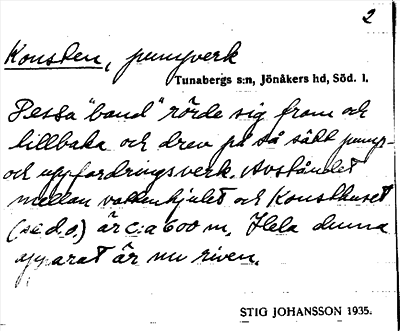 2
Konsten, pumpverk
Tunabergs s:n, Jönåkers hd, Söd. l.
Dessa "band" rörde sig fram och
tillbaka och drev på så sätt pump-
och uppfordringsverk. Avståndet
mellan vattenhjulet och Konsthuset
(se d.o.) är c:a 600 m. Hela denna
apparat är nu riven.
STIG JOHANSSON 1935.